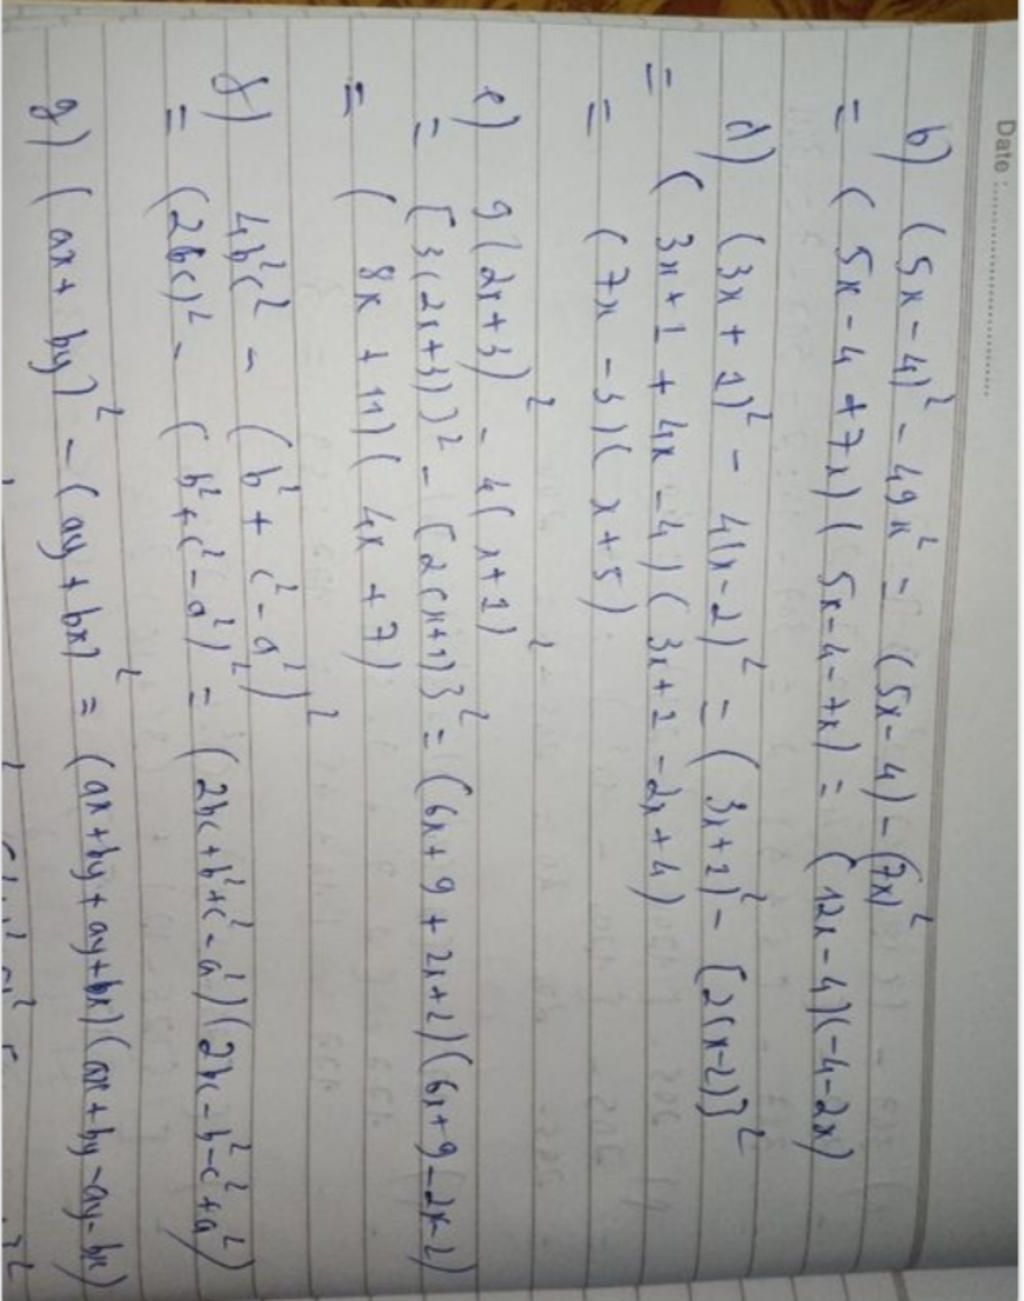 Date :
b) (5x - 4)² - 49x² = (5x - 4) - (7x)²
= (5x - 4 + 7x)(5x - 4 - 7x) = (12x - 4)(-4 - 2x)
d) (3x + 1)² - 4(x - 2)² = (3x + 1)² - [2(x - 2)}²
= (3x + 1 + 4x - 4)(3x + 1 - 2x + 4)
= (7x - 3)(x + 5)
e) 9(2x + 3)² - 4(x + 1)²
= [3(2x + 3))² - {2(x + 1)}² = (6x + 9 + 2x + 2)(6x + 9 - 2x - 2)
= (8x + 11)(4x + 7)
f) 4b²c² - (b² + c² - a²)²
= (2bc)² - (b² + c² - a²)² = (2bc + b² + c² - a²)(2bc - b² - c² + a²)
g) (ax + by)² - (ay + bx)² = (ax + by + ay + bx)(ax + by - ay - bx)